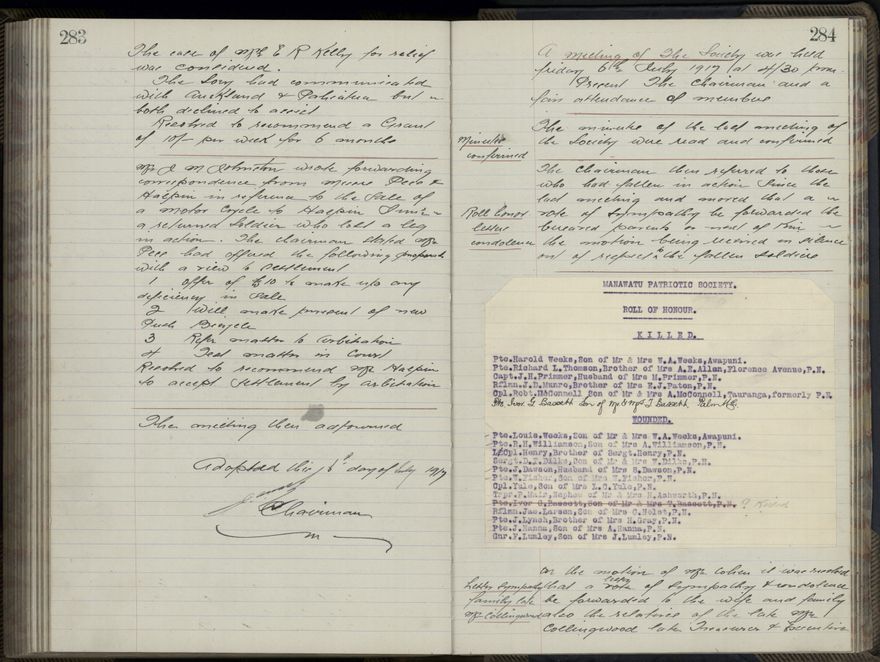 283
The case of Mrs E R Kelly for relief
was considered.
The Secy had communicated
with Auckland & Palmerston but
both declined to assist
Resolved to recommend a Grant
of 10/- per week for 6 months
Mr J M Johnston wrote forwarding
correspondence from Messrs Pegg &
Halpin in reference to the sale of
a motor cycle to Halpin
a returned Soldier who lost a leg
in action. The chairman stated Mr
had offered the following proposals
with a view to settlement
1 offer of £10 to make up any
deficiency in sale
2 Will make present of new
Push Bicycle
3 Refer matter to arbitration
4 Test matter in Court
Resolved to recommend Mr Halpin
to accept settlement by arbitration
The meeting then adjourned
Adopted this 6th day of July 1917
Chairman
284
A meeting of The Society was held
friday 6th July 1917 at 4/30 pm
Present The Chairman and a
fair attendance of members
Minutes
confirmed
The minutes of the last meeting of
the Society were read and confirmed
Roll Honor
letters
condolence
The Chairman then referred to those
who had fallen in action since the
last meeting and moved that a
vote of sympathy be forwarded the
bereaved parents or next of kin
the motion being received in silence
out of respect to the fallen soldiers
MANAWATU PATRIOTIC SOCIETY.
ROLL OF HONOUR.
KILLED.
Pte.Harold Weeks,Son of Mr & Mrs W.A.Weeks,Awapuni.
Pte.Richard L.Thomson,Brother of Mrs A.E.Allan,Florence Avenue,P.N.
Capt.J.H.Primmer,Husband of Mrs H.Primmer,P.N.
Rflmn.J.D.Munro,Brother of Mrs E.J.Paton,P.N.
Cpl.Robt.McConnell,Son of Mr & Mrs A.McConnell,Tauranga,formerly P.N.
Pte Ivor G. Bassett Son of Mr & Mrs T. Bassett Palm N.
WOUNDED.
Pte.Louis.Weeks,Son of Mr & Mrs W.A.Weeks,Awapuni.
Pte.R.H.Williamson,Son of Mrs A.Williamson,P.N.
L/Cpl.Henry,Brother of Sergt.Henry,P.N.
Sergt.D.I.Dilks,Son of Mr & Mrs W.Dilks,P.N.
Pte.J.Dawson,Husband of Mrs S.Dawson,P.N.
Pte.W.Fisher,Son of Mrs W.Fisher,P.N.
Cpl.Yule,Son of Mrs L.C.Yule,P.N.
Trpr.P.Mair,Nephew of Mr & Mrs H.Ashworth,P.N.
Pte.Ivor G.Bassett,Son of Mr & Mrs T.Bassett,P.N. ? Killed
Rflmn.Jas.Larsen,Son of Mrs C.Holst,P.N.
Pte.J.Lynch,Brother of Mrs H.Gray,P.N.
Pte.J.Hanna,Son of Mrs A.Hanna,P.N.
Gnr.F.Lumley,Son of Mrs J.Lumley,P.N.
Letter Sympathy
family late
Mr Collingwood
On the motion of Mr Cohen it was resolved
that a letter of sympathy & condolence
be forwarded to the wife and family
also the relatives of the late Mr
Collingwood late Treasurer & Executive